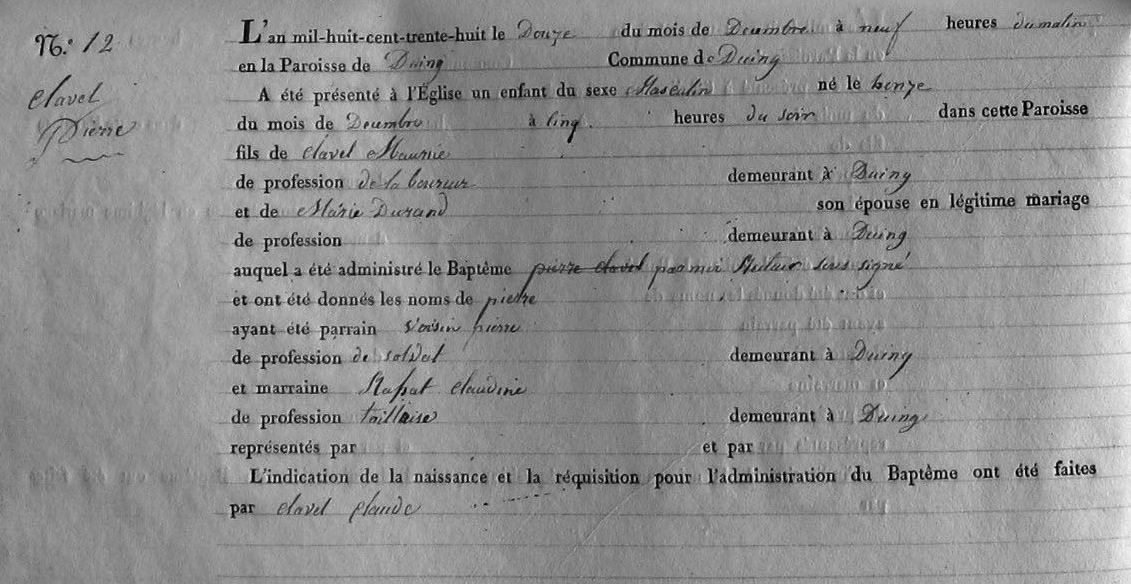 N.º 12
Clavel
Pierre
L'an mil-huit-cent-trente-huit le Douze du mois de Decembre à neuf heures du matin
en la Paroisse de Duing Commune de Duing
A été présenté à l'Église un enfant du sexe Masculin né le honze
du mois de Decembre à cinq heures du soir dans cette Paroisse
fils de Clavel Maurice
de profession de laboureur demeurant à Duing
et de Marie Durand son épouse en légitime mariage
de profession demeurant à Duing
auquel a été administré le Baptême pierre clavel par moi Recteur sous signé
et ont été donnés les noms de pierre
ayant été parrain Voisin pierre
de profession de soldat demeurant à Duing
et marraine claudine
de profession taillaise demeurant à Duing
représentés par et par
L'indication de la naissance et la réquisition pour l'administration du Baptême ont été faites
par Clavel Claude